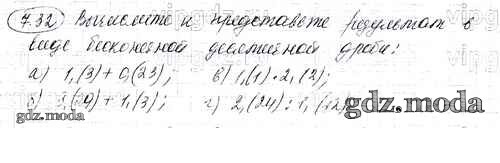 7.32) Вычислите и представьте результат в
виде бесконечной десятичной дроби:
а) 1,(3) + 0,(23); в) 1,(1) · 2,(2);
+ 1,(3); г) 2,(24) :
gdz.moda
gdz.moda